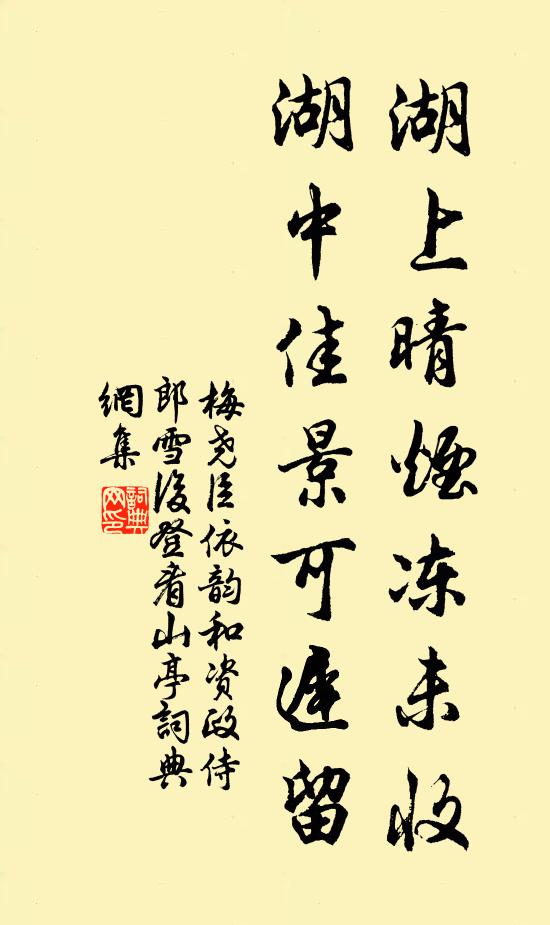 湖上晴煙冻未收
湖中佳景可遲留
梅尧臣依韵和资政侍
郎雪後登看山亭詞典
網集
詞典
网印